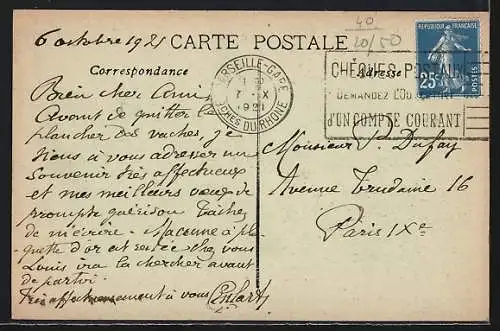 6 octobre 1921
40
20/50
CARTE POSTALE
RÉPUBLIQUE FRANÇAISE
25c
Correspondance
Adresse
MARSEILLE-GARE
7 - X
1921
BCHES DU RHONE
CHÈQUES POSTAUX
DEMANDEZ L'OUVERTURE
d'UN COMPTE COURANT
Bien cher Ami,
Avant de quitter le
plancher des vaches, je
tiens à vous adresser un
souvenir très affectueux
et mes meilleurs vœux de
prompte guérison. Tâchez
de m'écrire. Ma canne à pla
quette d'or est restée chez vous
Louis ira la chercher avant
de partir.
Très affectueusement à vous
Monsieur P. Dufay
Avenue Trudaine 16
Paris IXe